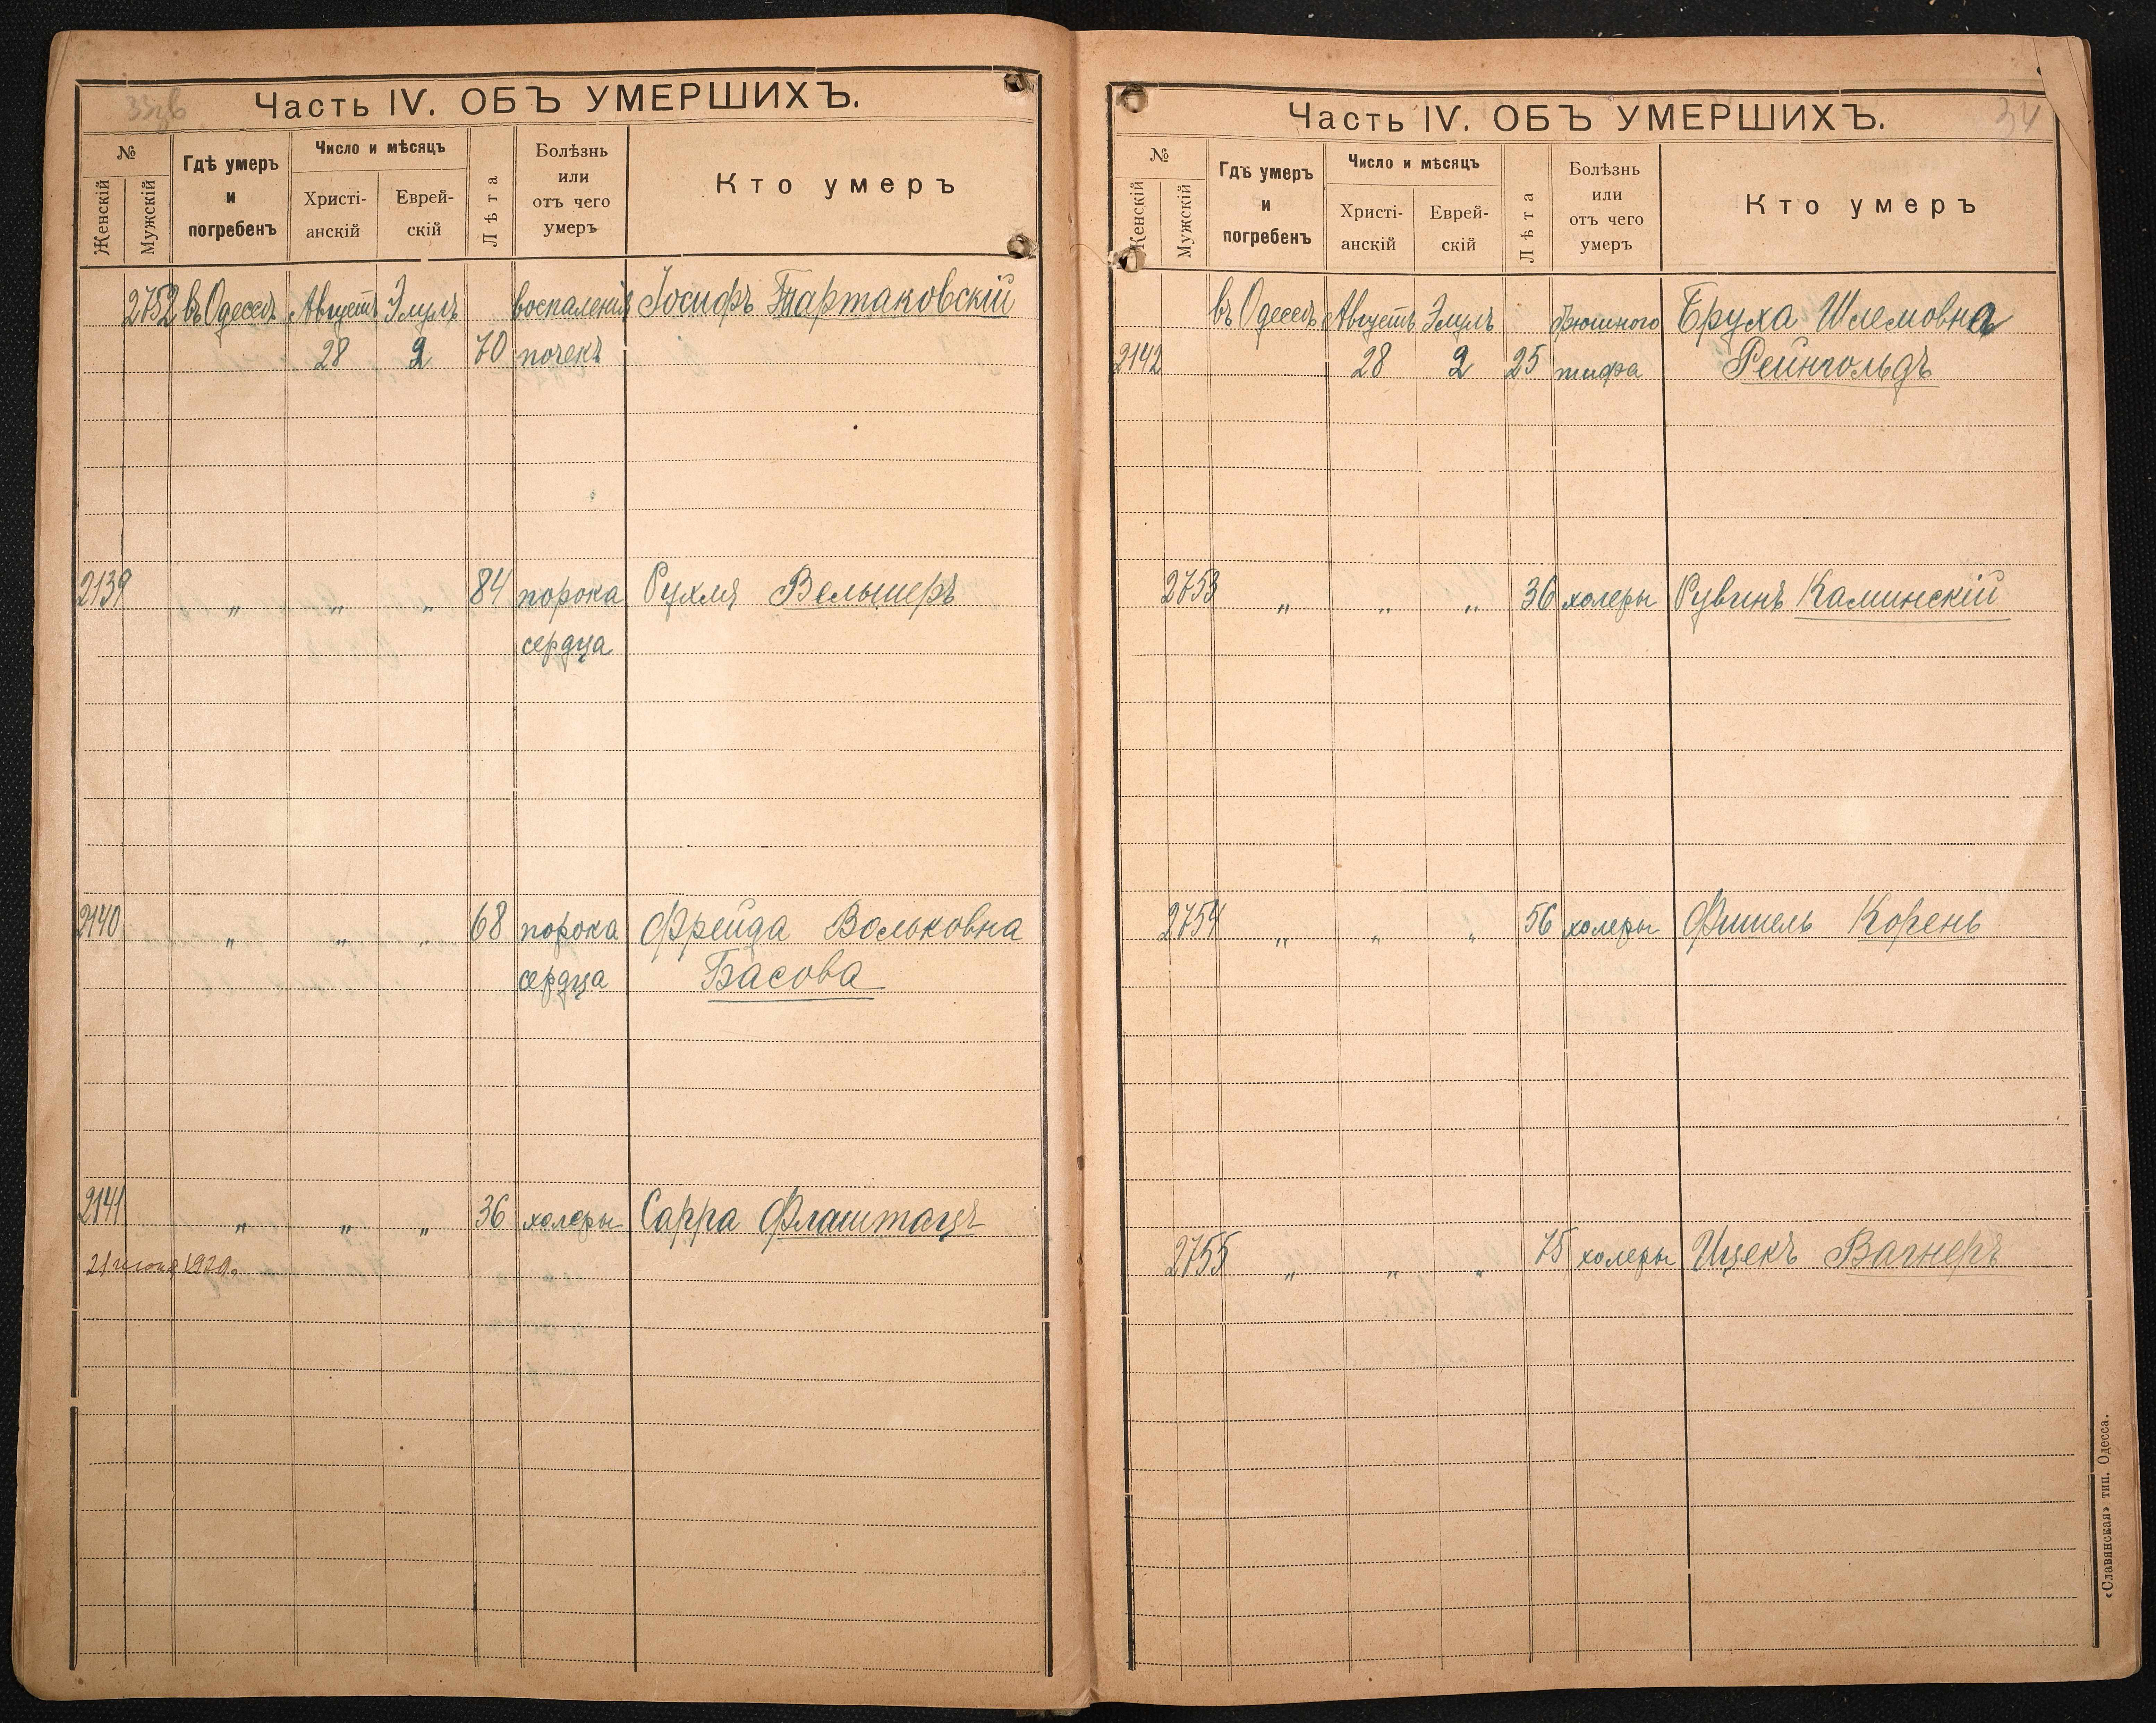 33об
Часть IV. ОБЪ УМЕРШИХЪ.
№
Женскій
Мужскій
Гдѣ умеръ
и
погребенъ
Число и мѣсяцъ
Христі-
анскій
Еврей-
скій
Лѣта
Болѣзнь
или
отъ чего
умеръ
Кто умеръ
2752 въ Одессѣ Августъ Элулъ воспаленія Іосифъ Тартаковскій
28 2 70 почекъ
2139 „ „ „ 84 порока Рухля Вельшеръ
сердца
2140 „ „ „ 68 порока Фрейда Вольковна
сердца Басова
2141 „ „ „ 36 холеры Сарра Флаштацъ
21 1929.
34
Часть IV. ОБЪ УМЕРШИХЪ.
№
Женскій
Мужскій
Гдѣ умеръ
и
погребенъ
Число и мѣсяцъ
Христі-
анскій
Еврей-
скій
Лѣта
Болѣзнь
или
отъ чего
умеръ
Кто умеръ
въ Одессѣ Августъ Элулъ брюшного Бруха Шлемовна
2142 28 2 25 тифа Рейнгольдъ
2753 „ „ „ 36 холеры Рувинъ Каминскій
2754 „ „ „ 56 холеры Фишель Корень
2755 „ „ „ 75 холеры Ицекъ Вагнеръ
«Славянская» тип. Одесса.